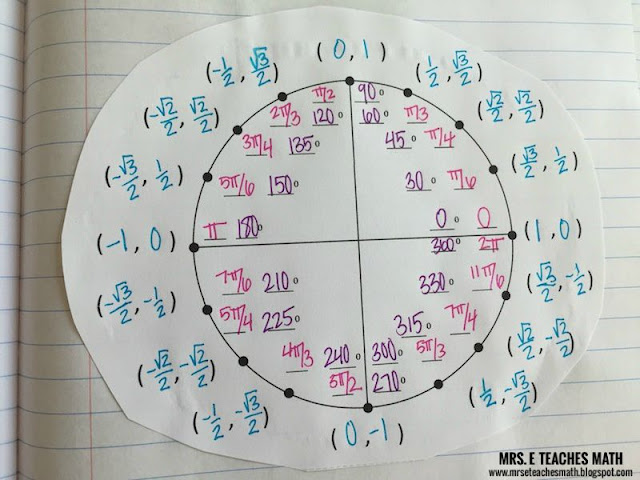 (0, 1)
(-1/2, √3/2)
(1/2, √3/2)
(-√2/2, √2/2)
(√2/2, √2/2)
(-√3/2, 1/2)
(√3/2, 1/2)
(-1, 0)
(1, 0)
(-√3/2, -1/2)
(√3/2, -1/2)
(-√2/2, -√2/2)
(√2/2, -√2/2)
(-1/2, -√3/2)
(1/2, -√3/2)
(0, -1)
π/2 90°
2π/3 120° 60° π/3
3π/4 135° 45° π/4
5π/6 150° 30° π/6
π 180° 0° 0
360° 2π
7π/6 210° 330° 11π/6
5π/4 225° 315° 7π/4
4π/3 240° 300° 5π/3
3π/2 270°
MRS. E TEACHES MATH
www.mrseteachesmath.blogspot.com